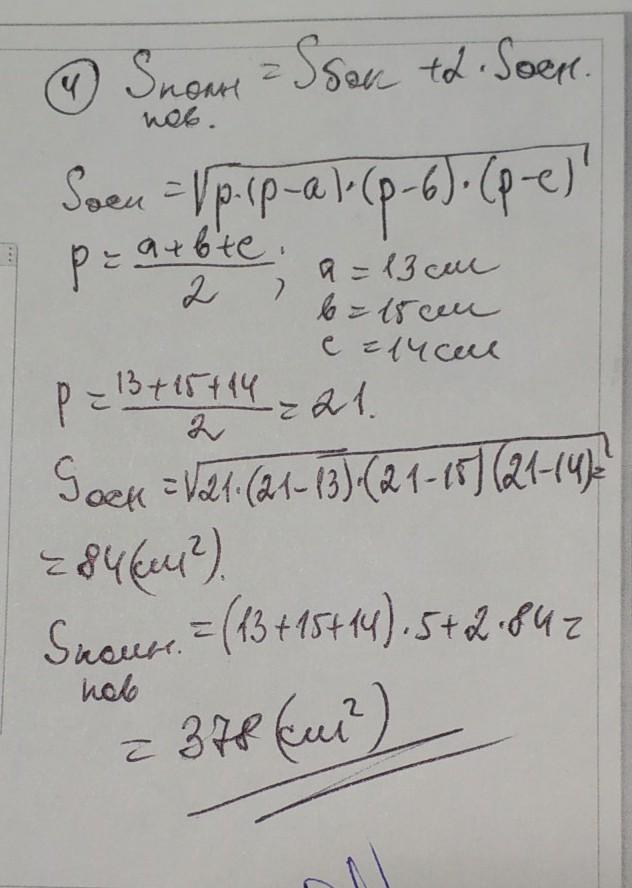 ④ Sполн = Sбок + 2 · Sосн.
пов.
Sосн = √p·(p-a)·(p-b)·(p-c)
p = a+b+c / 2 ;
a = 13 см
b = 15 см
c = 14 см
p = 13+15+14 / 2 = 21.
Sосн = √21·(21-13)·(21-15)(21-14) =
= 84 (см²).
Sполн. = (13+15+14)·5+2·84 =
пов
= 378 (см²)